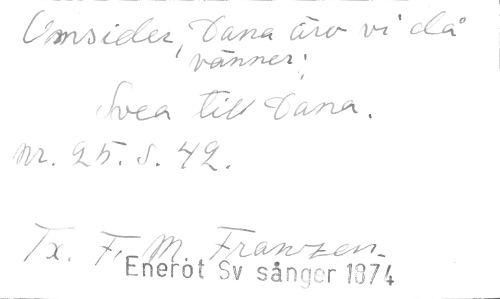 Omsider, Dana äro vi då
vänner;
Svea till Dana.
nr. 25. s. 42.
Tx. F. M. Franzen.
Enerot Sv sånger 1874